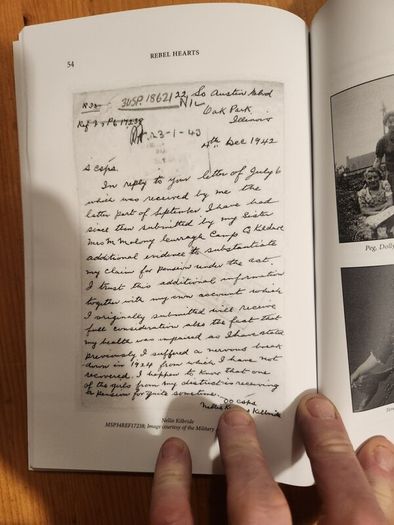 54
REBEL HEARTS
R32
3USP.18621
NIL
22 So Austin Blvd
Oak Park
Illinois
23-1-43
4th Dec 1942
A Cspa.
In reply to your letter of July 6
which was received by me the
latter part of September I have had
since then submitted by my Sister
Mrs M. Molony Curragh Camp Co Kildare
additional evidence to substantiate
my claim for pension under the act.
I trust this additional information
together with my own account which
I originally submitted will receive
full consideration also the fact that
my health was impaired as I have stated
previously I suffered a nervous break
down in 1924 from which I have not
recovered. I happen to know that one
of the girls from my district is receiving
a pension for quite sometime.
Nellie Kilbride
Nellie Kilbride
MSP34REF17238; Image courtesy of the Military
Peg, Dolly